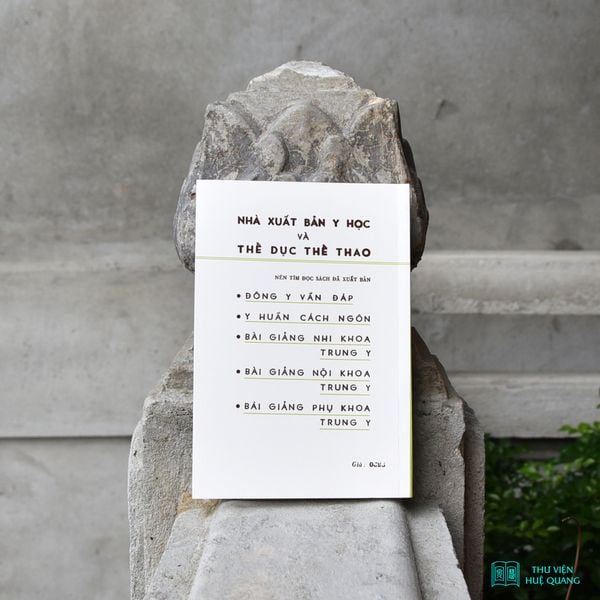 NHÀ XUẤT BẢN Y HỌC
VÀ
THỂ DỤC THỂ THAO
NÊN TÌM ĐỌC SÁCH ĐÃ XUẤT BẢN
• ĐÔNG Y VẤN ĐÁP
• Y HUẤN CÁCH NGÔN
• BÀI GIẢNG NHI KHOA
TRUNG Y
• BÀI GIẢNG NỘI KHOA
TRUNG Y
• BÀI GIẢNG PHỤ KHOA
TRUNG Y
Giá :
THƯ VIỆN
HUỆ QUANG